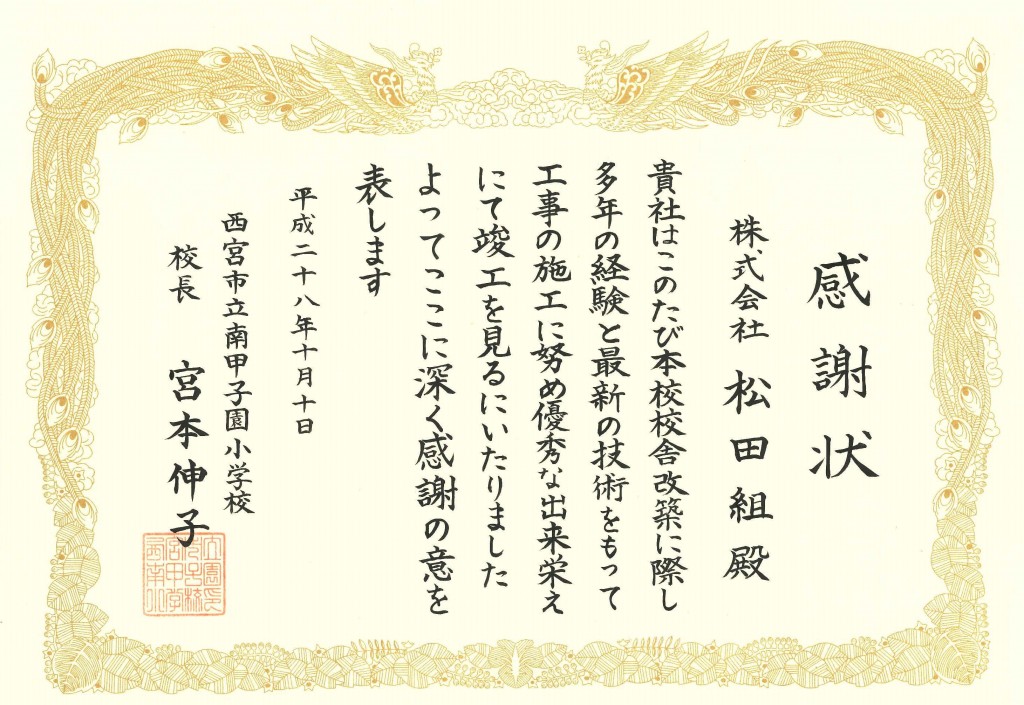 感謝状
株式会社 松田組殿
貴社はこのたび本校校舎改築に際し
多年の経験と最新の技術をもって
工事の施工に努め優秀な出来栄え
にて竣工を見るにいたりました
よってここに深く感謝の意を
表します
平成二十八年十月十日
西宮市立南甲子園小学校
校長 宮本伸子